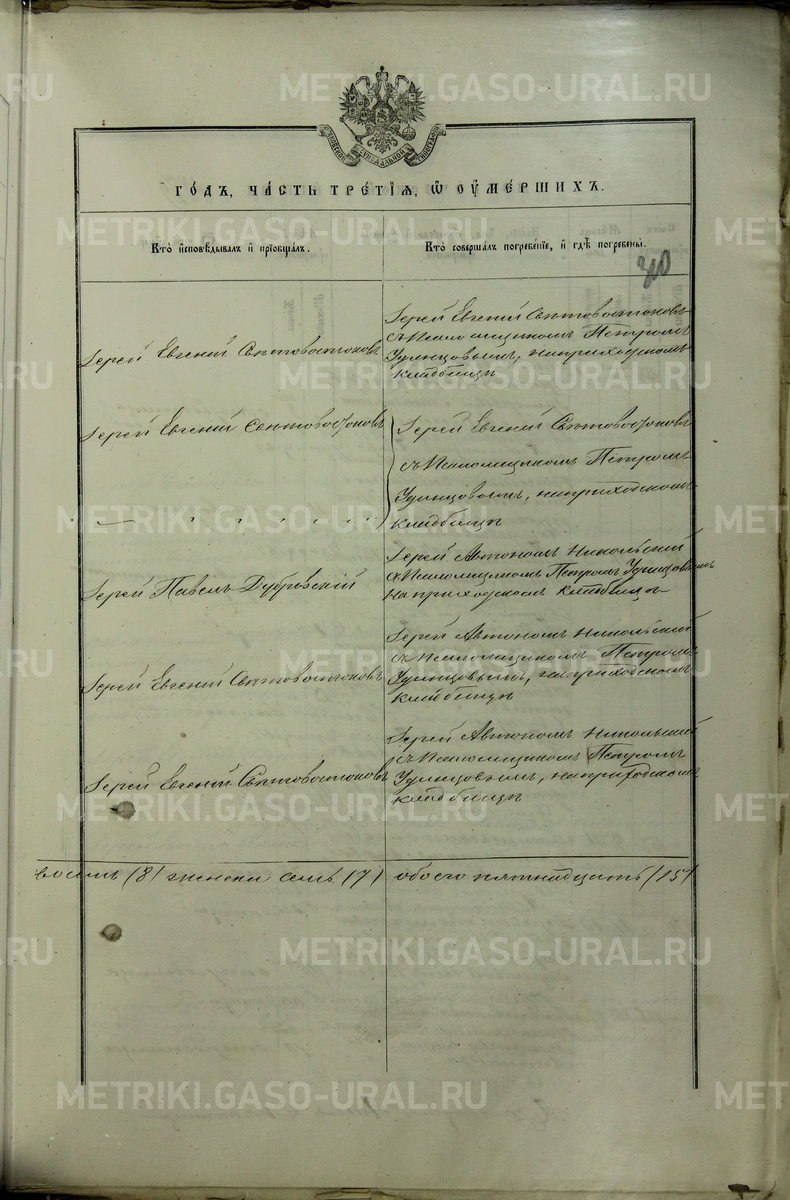 METRIKI.GASO-URAL.RU
ГО́ДЪ, ЧА́СТЬ ТРЕ́ТІЯ, Ѡ ОУ҆МЕ́РШИХЪ.
Кто̀ и҆сповѣ́дывалъ и҆ пріобща́лъ.
Кто̀ соверша́лъ погребе́ніе, и҆ гдѣ̀ погребены̀.
Іерей Евгений Свѣтовостоковъ
Іерей Евгений Свѣтовостоковъ
съ Псаломщикомъ Петромъ
Удинцовымъ, на приходскомъ
кладбищѣ
Іерей Евгений Свѣтовостоковъ
Іерей Евгений Свѣтовостоковъ
съ Псаломщикомъ Петромъ
Удинцовымъ, на приходскомъ
кладбищѣ
Іерей Павелъ Дубровскій
Іерей Автономъ Никольский
съ Псаломщикомъ Петромъ Удинцовымъ
на приходскомъ кладбищѣ
Іерей Евгений Свѣтовостоковъ
Іерей Автономъ Никольский
съ Псаломщикомъ Петромъ
Удинцовымъ, на приходскомъ
кладбищѣ
Іерей Евгений Свѣтовостоковъ
Іерей Автономъ Никольский
съ Псаломщикомъ Петромъ
Удинцовымъ, на приходскомъ
кладбищѣ
восемь (8) женска семь (7) обоего пятнадцать (15)